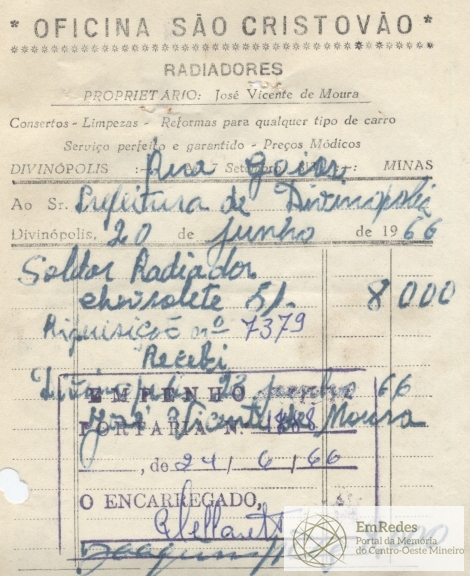 * OFICINA SÃO CRISTOVÃO *
RADIADORES
PROPRIETARIO: José Vicente de Moura
Consertos - Limpezas - Reformas para qualquer tipo de carro
Serviço perfeito e garantido - Preços Módicos
Rua Goiás
DIVINÓPOLIS :- 7 Setembro :- MINAS
Ao Sr. Prefeitura de Divinopolis
Divinópolis, 20 de junho de 1966
Soldar Radiador
chevrolete 51. 8 000
Riquisição nº 7379
Recebi
23 junho 66
José Vicente de Moura
EMPENHO
PORTARIA N. 188
, de 24/6/66
O ENCARREGADO,
EmRedes
Portal da Memória
do Centro-Oeste Mineiro